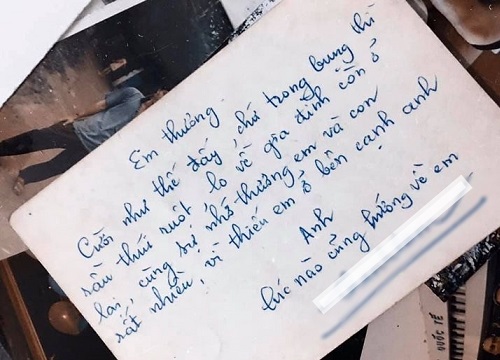 Em thương
Cười như thế đấy, chứ trong bụng thì
sầu thúi ruột, lo về gia đình còn ở
lại, cùng sự nhớ thương em và con
rất nhiều, vì thiếu em ở bên cạnh anh
Anh
lúc nào cũng hướng về em
QUỐC TẾ